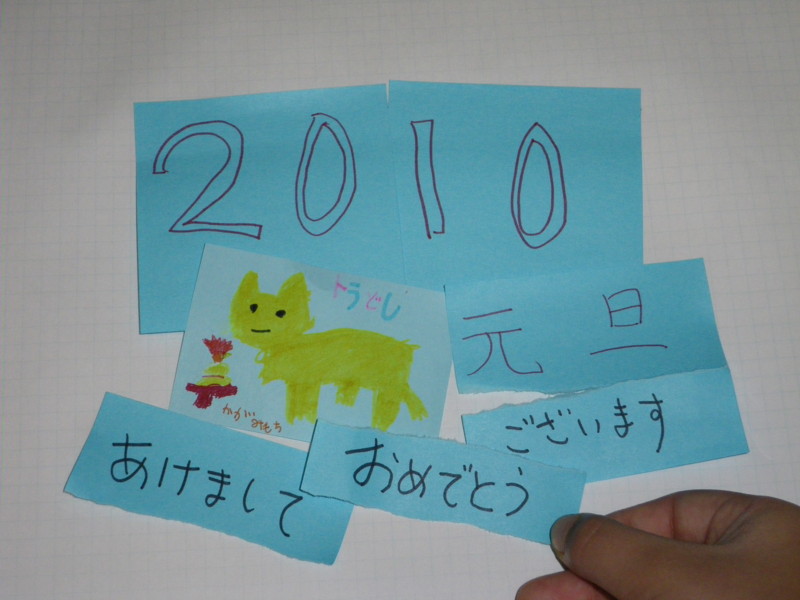 2010
トラどし
元旦
かがみもち
あけまして
おめでとう
ございます